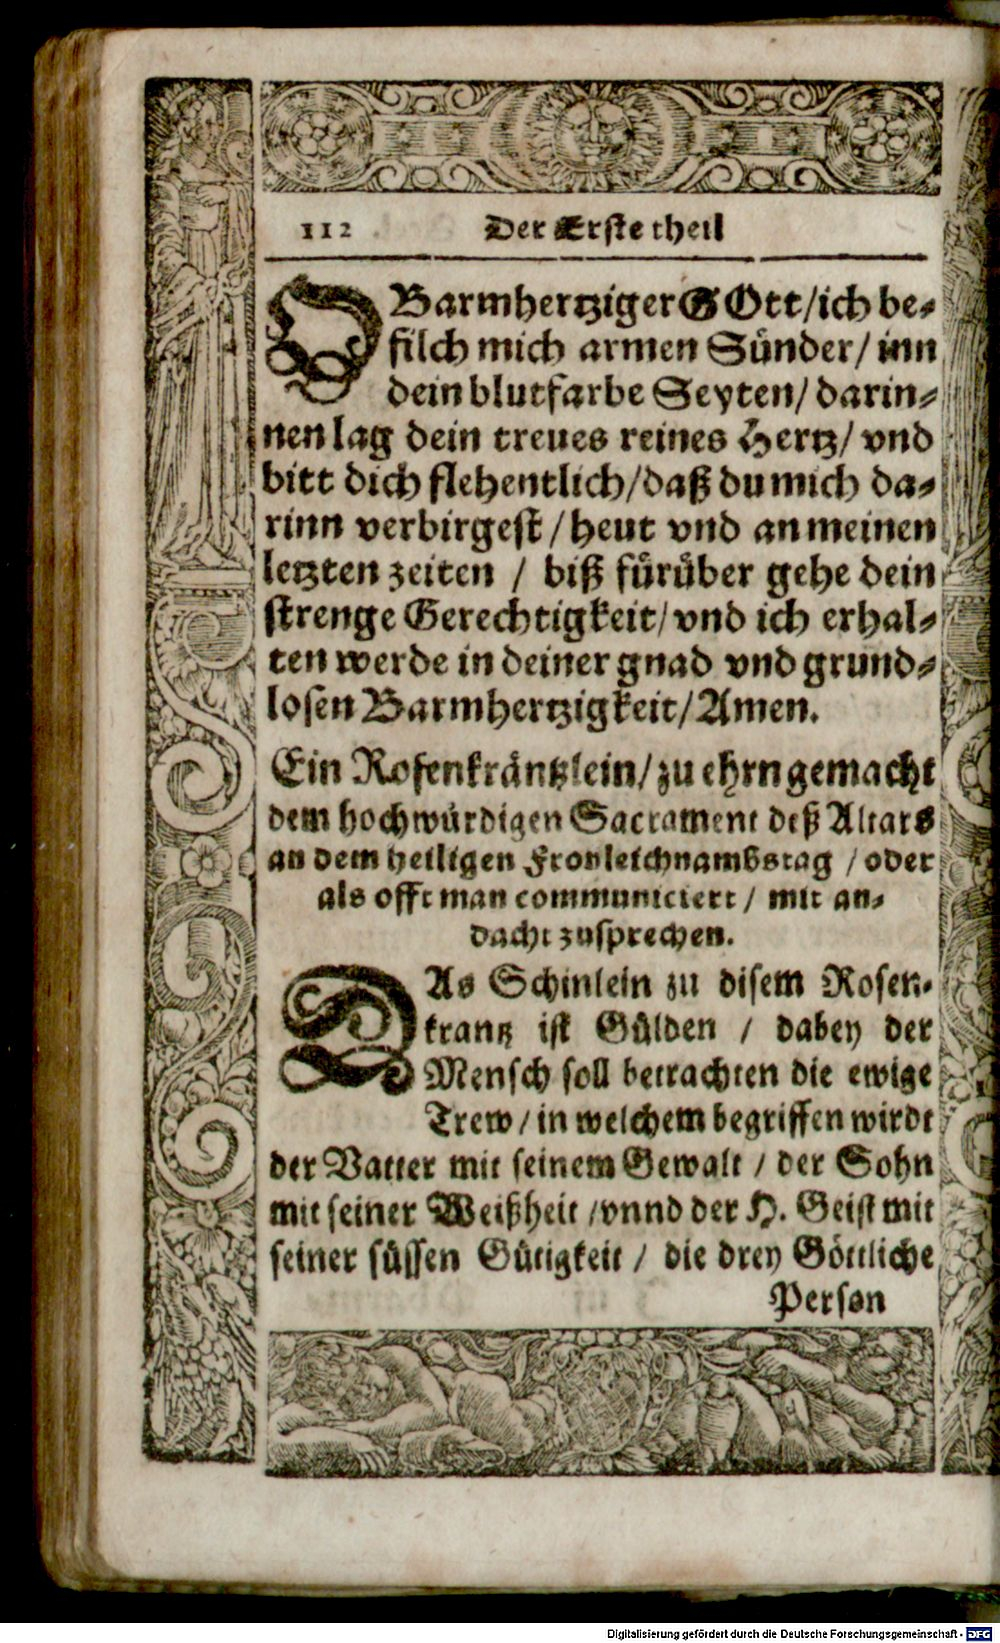 112 Der Erste theil
O Barmhertziger GOtt/ich be-
filch mich armen Sünder/ inn
dein blutfarbe Seyten/ darin-
nen lag dein treues reines Hertz/ vnd
bitt dich flehentlich/daß du mich da-
rinn verbirgest/heut vnd an meinen
letzten zeiten / biß fürüber gehe dein
strenge Gerechtigkeit/ vnd ich erhal-
ten werde in deiner gnad vnd grund-
losen Barmhertzigkeit/Amen.
Ein Rosenkräntzlein/zu ehrn gemacht
dem hochwürdigen Sacrament deß Altars
an dem heiligen Fronleichnambstag /oder
als offt man communiciert/ mit an-
dacht zusprechen.
DAs Schinlein zu disem Rosen-
krantz ist Gülden / dabey der
Mensch soll betrachten die ewige
Trew/in welchem begriffen wirdt
der Vatter mit seinem Gewalt / der Sohn
mit seiner Weißheit /vnnd der H. Geist mit
seiner süssen Gütigkeit / die drey Göttliche
Person
Digitalisierung gefördert durch die Deutsche Forschungsgemeinschaft - DFG